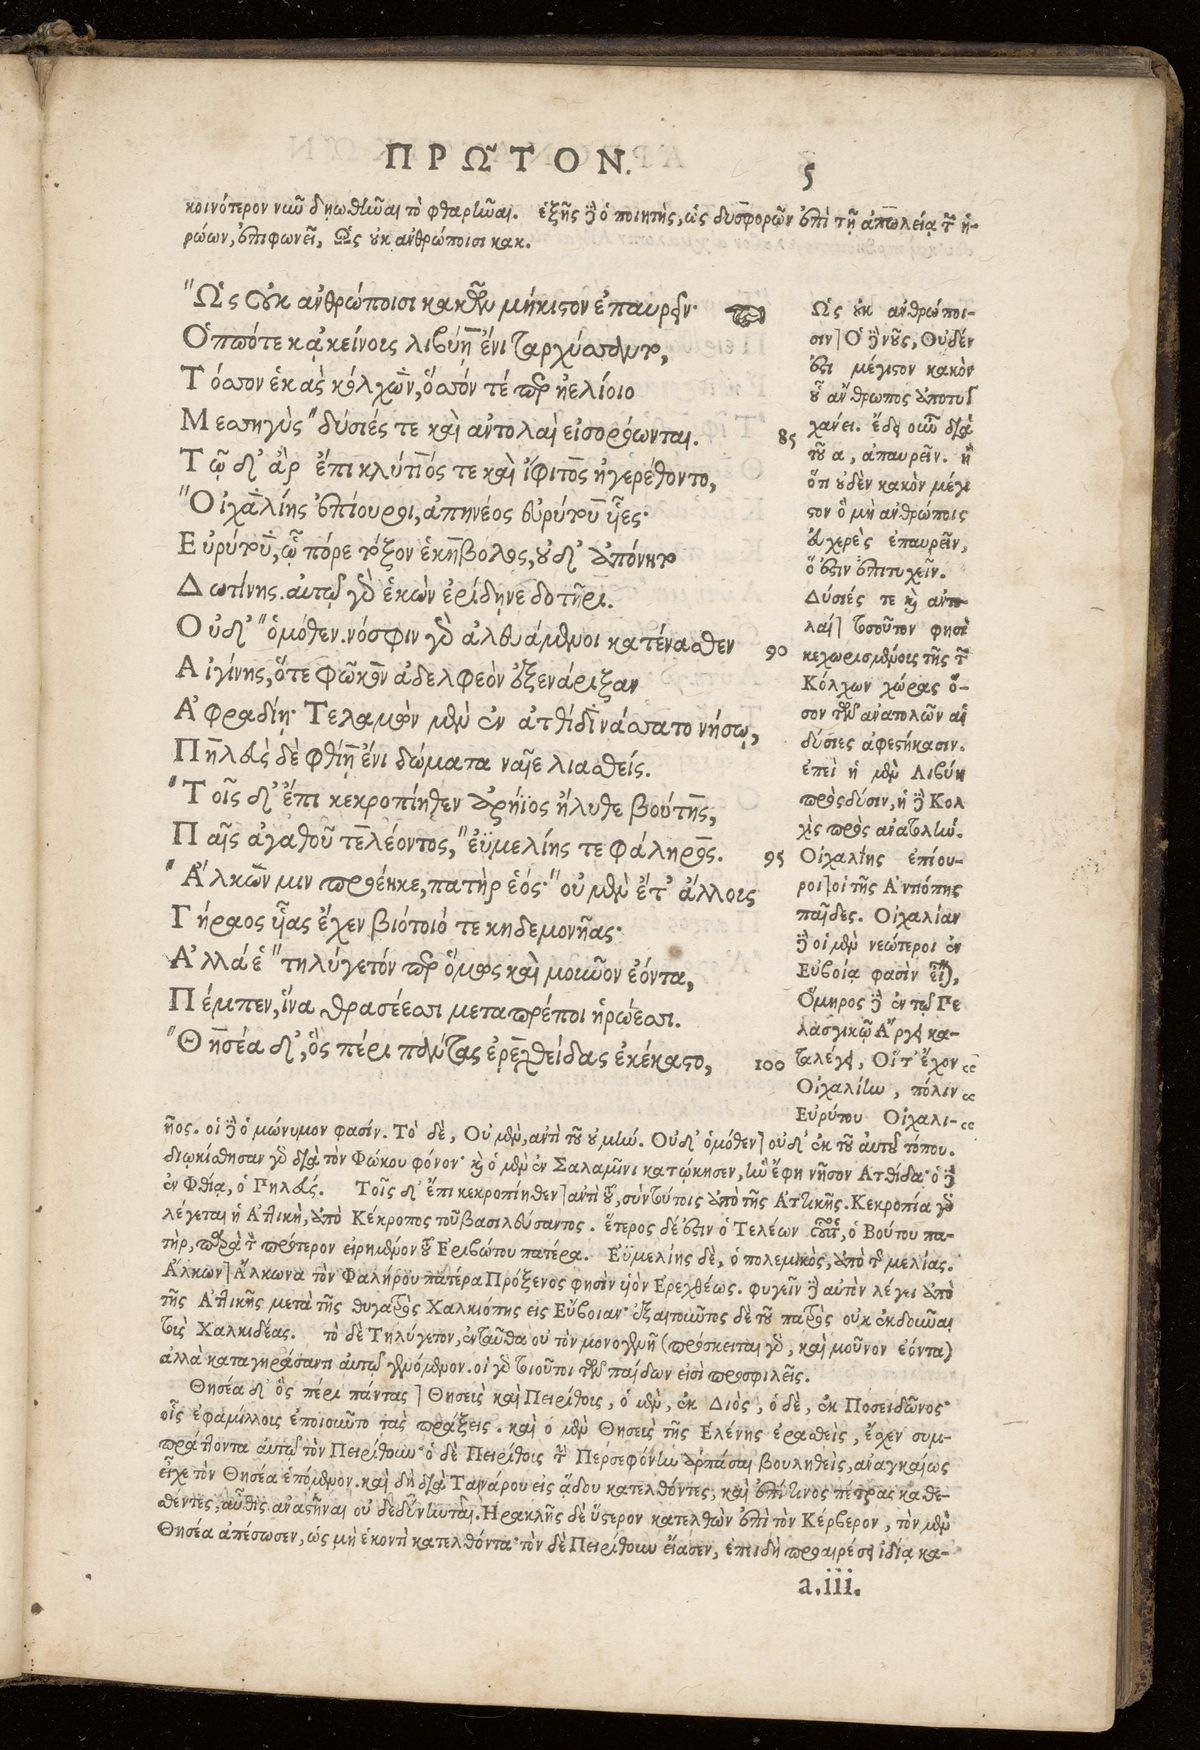 ΠΡΩ͂ΤΟΝ.
5
κοινότερον νιῦ δηωθῆναι τὸ φθαρῆναι. ἑξῆς δὲ ὁ ποιητὴς, ὡς δυσφορῶν ἐπὶ τῇ ἀπωλείᾳ τῶν ἡ-
ρώων, ἐπιφωνεῖ, Ὣς οὐκ ἀνθρώποισι κακ.
"Ὣς οὐκ ἀνθρώποισι κακῶν μήκιστον ἐπαυρεῖν·
Ὁππότε κἀκείνοις λιβύῃ ἔνι ταρχύσαντο,
Τόσσον ἑκὰς κόλχων, ὅσσόν τέ περ ἠελίοιο
Μεσσηγὺς "δύσιές τε καὶ ἀντολαὶ εἰσορόωνται.
85
Τῷ δ' ἂρ ἔπι κλύτιός τε καὶ ἴφιτος ἠγερέθοντο,
"Οἰχαλίης ἐπίουροι, ἀπηνέος εὐρύτου υἷες·
Εὐρύτου, ᾧ πόρε τόξον ἑκηβόλος, οὐδ' ἀπόνητο
Δωτίνης. αὐτῷ γὰρ ἑκὼν ἐρίδηνε δοτῆρι.
Τοῖσι δ' ἐπ' αἰακίδαι μετεκίαθον. οὐ μὲν ἅμ' ἄμφω,
Οὐδ' "ὁμόθεν. νόσφιν γὰρ ἀλευάμενοι κατένασθεν
90
Αἰγίνης, ὅτε φῶκον ἀδελφεὸν ἐξενάριξαν
Ἀφραδίῃ· Τελαμὼν μὲν ἐν ἀτθίδι νάσσατο νήσῳ,
Πηλεὺς δὲ φθίῃ ἔνι δώματα ναῖε λιασθείς.
"Τοῖς δ' ἔπι κεκροπίηθεν ἀρήϊος ἤλυθε βούτης,
Παῖς ἀγαθοῦ τελέοντος, "ἐϋμελίης τε φάληρος.
95
"Ἄλκων μιν προέηκε, πατὴρ ἑός· "οὐ μὲν ἔτ' ἄλλους
Γήραος υἷας ἔχεν βιότοιό τε κηδεμονῆας·
Ἀλλά ἑ "τηλύγετόν περ ὅμως καὶ μοῦνον ἐόντα,
Πέμπεν, ἵνα θρασέεσσι μεταπρέποι ἡρώεσσι.
"Θησέα δ', ὃς πέρι πάντας ἐρεχθείδας ἐκέκαστο,
100
Ὣς οὐκ ἀνθρώποι-
σιν] Ὁ δὲ νοῦς, Οὐδέν
ἐστι μέγιστον κακὸν
οὗ ἄνθρωπος ἀποτυγ
χάνει. ἔδει οὖν διὰ
τοῦ α, ἀπαυρεῖν. ἢ
ὅτι οὐδὲν κακὸν μέγι
στον ὃ μὴ ἀνθρώποις
εὐχερὲς ἐπαυρεῖν,
ὅ ἐστιν ἐπιτυχεῖν.
Δύσιές τε καὶ ἀντο-
λαί] τοσοῦτον φησὶ
κεχωρισμένοις τῆς τῶν
Κόλχων χώρας ὅ-
σον τῶν ἀνατολῶν αἱ
δύσιες ἀφεστήκασιν.
ἐπεὶ ἡ μὲν Λιβύη
πρὸς δύσιν, ἡ δὲ Κολ
χὶς πρὸς ἀνατολήν.
Οἰχαλίης ἐπίου-
ροι] οἱ τῆς Ἀντιόπης
παῖδες. Οἰχαλίαν
δὲ οἱ μὲν νεώτεροι ἐν
Εὐβοίᾳ φασὶν εἶναι,
Ὅμηρος δὲ ἐν τῷ Πε
λασγικῷ Ἄργει κα-
ταλέγει, Οἵ τ' ἔχον
Οἰχαλίην, πόλιν
Εὐρύτου Οἰχαλι-
ῆος. οἱ δὲ ὁμώνυμον φασίν. Τὸ δὲ, Οὐ μὲν, ἀντὶ τοῦ οὐ μήν. Οὐδ' ὁμόθεν] οὐδ' ἐκ τοῦ αὐτοῦ τόπου.
διῳκίσθησαν γὰρ διὰ τὸν Φώκου φόνον· καὶ ὁ μὲν ἐν Σαλαμῖνι κατῴκησεν, ἣν ἔφη νῆσον Ἀτθίδα· ὁ δὲ
ἐν Φθίᾳ, ὁ Πηλεύς. Τοῖς δ' ἔπι κεκροπίηθεν] ἀντὶ τοῦ, σὺν τούτοις ἀπὸ τῆς Ἀττικῆς. Κεκροπία γὰρ
λέγεται ἡ Ἀττικὴ, ἀπὸ Κέκροπος τοῦ βασιλεύσαντος. ἕτερος δέ ἐστιν ὁ Τελέων οὗτος, ὁ Βούτου πα-
τὴρ, παρὰ τὸν πρότερον εἰρημένον τοῦ Ἐριβώτου πατέρα. Ἐϋμελίης δὲ, ὁ πολεμικὸς, ἀπὸ τῆς μελίας.
Ἄλκων] Ἄλκωνα τὸν Φαλήρου πατέρα Πρόξενος φησὶν υἱὸν Ἐρεχθέως. φυγεῖν δὲ αὐτὸν λέγει ἀπὸ
τῆς Ἀττικῆς μετὰ τῆς θυγατρὸς Χαλκιόπης εἰς Εὔβοιαν· ἐξαιτοῦντος δὲ τοῦ πατρὸς οὐκ ἐκδοῦναι
τοὺς Χαλκιδέας. τὸ δὲ Τηλύγετον, ἐνταῦθα οὐ τὸν μονογενῆ (πρόσκειται γὰρ, καὶ μοῦνον ἐόντα)
ἀλλὰ καταγηράσαντι αὐτῷ γενόμενον. οἱ γὰρ τοιοῦτοι τῶν παίδων εἰσὶ προσφιλεῖς.
Θησέα δ' ὃς πέρι πάντας] Θησεὺς καὶ Πειρίθους, ὁ μὲν, ἐκ Διὸς, ὁ δὲ, ἐκ Ποσειδῶνος·
οἷς ἐφαμίλλοις ἐποιοῦντο τὰς πράξεις. καὶ ὁ μὲν Θησεὺς τῆς Ἑλένης ἐρασθεὶς, ἔσχεν συμ-
πράττοντα αὐτῷ τὸν Πειρίθουν· ὁ δὲ Πειρίθους τὴν Περσεφόνην ἁρπάσαι βουληθεὶς, ἀναγκαίως
εἶχε τὸν Θησέα ἑπόμενον. καὶ δὴ διὰ Ταινάρου εἰς ᾅδου κατελθόντες, καὶ ἐπί τινος πέτρας καθε-
σθέντες, αὖθις ἀναστῆναι οὐ δεδύνηνται. Ἡρακλῆς δὲ ὕστερον κατελθὼν ἐπὶ τὸν Κέρβερον, τὸν μὲν
Θησέα ἀπέσωσεν, ὡς μὴ ἑκοντὶ κατελθόντα· τὸν δὲ Πειρίθουν εἴασεν, ἐπειδὴ προαιρέσει ἰδίᾳ κα-
a.iii.